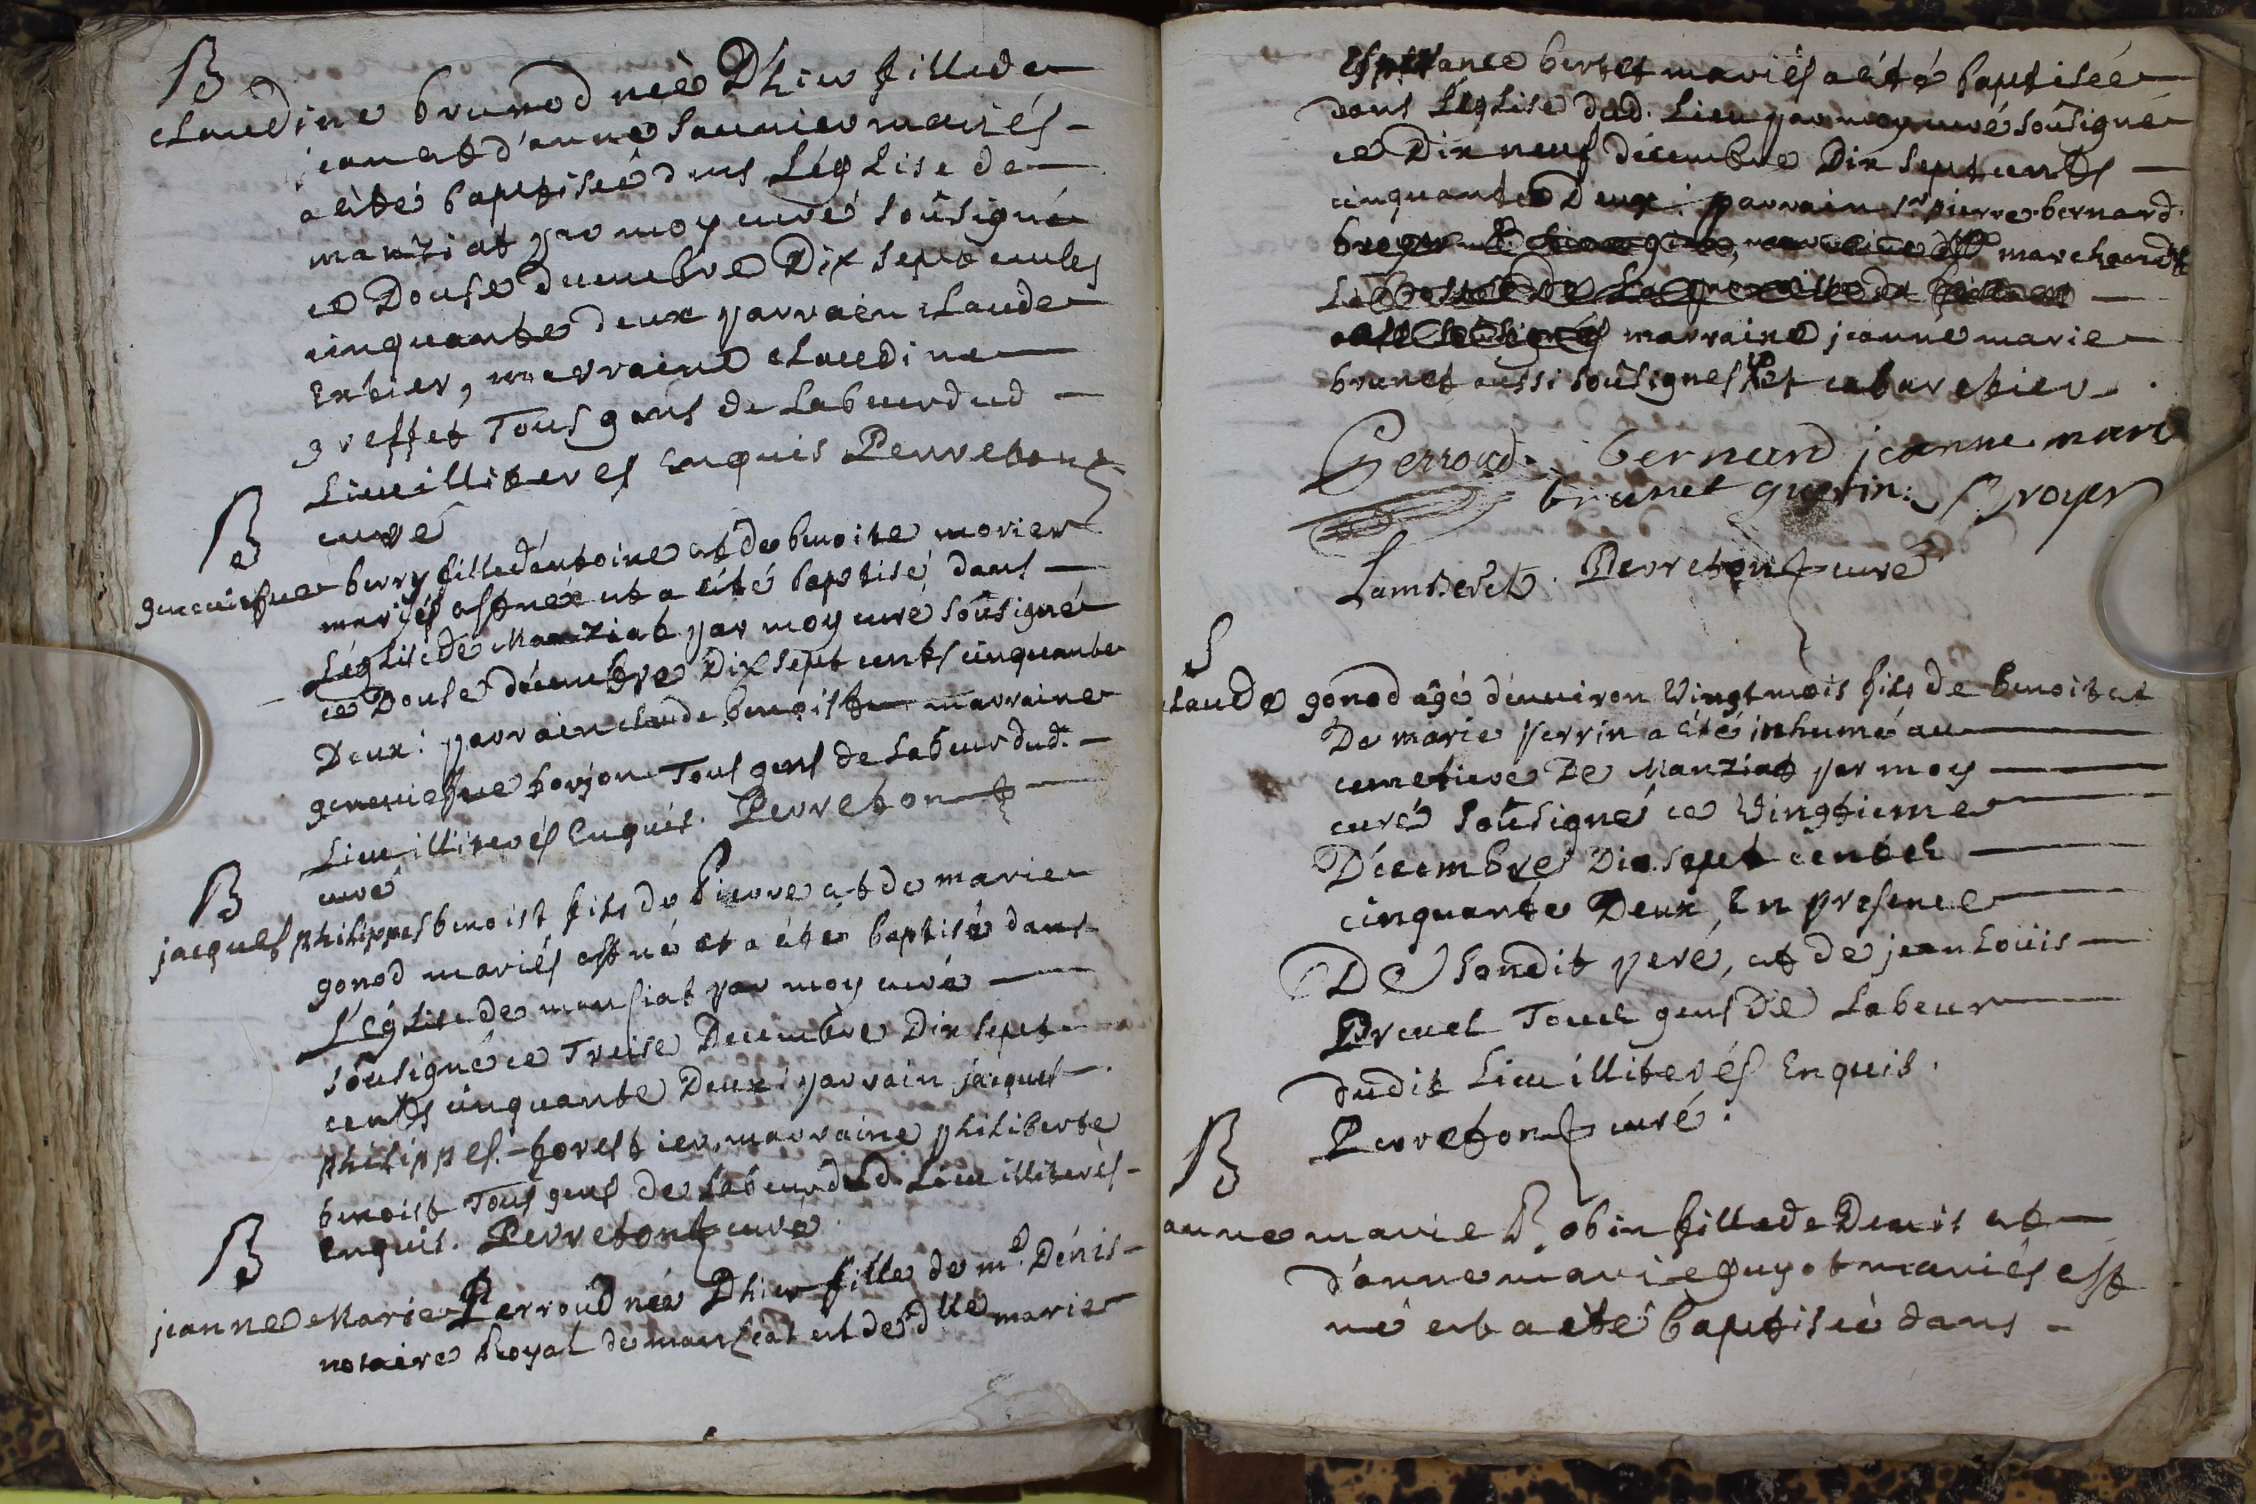 B
claudine brunod née Dhier fille de
jean et d'anne saunier mariés
a èté baptiseé dans Léglise de
manziat par moy curé soûsigné
ce Douse decembre Dix sept cents
cinquante deux parrain claude
Exbier, marraine claudine
greffet Tous gens de Labeur dud
Lieu illiterés Enquis Perreton
curé
B
geneviefve berry fille d'éntoine et de benoite morier
mariés est nèe et a èté baptisé dans
Léglise de Manziat par moy curé soûsigné
ce Douse décembre Dix sept cents cinquante
Deux: parrain claude benoist marraine
geneviefve borjon Tous gens de Labeur dud.
Lieu illiterés Enquis. Perreton
curé
B
jacques philippes benoist fils de Pierre et de marie
gonod mariés est né et a èté baptisé dans
L'Eglise de mansiat par moy curé
soûsigné ce Treise Decembre Dix sept
cents cinquante Deux: parrain jacques
philippes forestier, marraine philiberte
benoist Tous gens de Labeur dud. Lieu illiterés
Enquis. Perreton curé
B
jeanne Marie Perroud née Dhier fille de me Dénis
notaire Royal de mansiat et de dlle marie
Esperance bertet mariés a été baptisée
dans L'église dud. Lieu par moy curé soûsigné
ce Dix neuf décembre Dix sept cents
cinquante Deux: parrain sr pierre bernard
marchand
marraine jeanne marie
brunet aussi soûsignés et cabaretier
Perroud. bernard jeanne mari
brunet guerin: Royer
Lamberet. Perreton curé
S
claude gonod âgé d'enuiron Vingt mois fils de benoit et
De marie perrin a été inhumé au
cemetiere De Manziat par moy
curé soûsigné ce Vingtieme
Décembre Dix sept cents
cinquante Deux, En presence
De Sondit peré, et de jean Loüis
Brevel Tous gens De Labeur
dudit Lieu illiterés Enquis.
Perreton curé:
B
anne marie Robin fille de Denis et
d'anne marie guyot mariés est
né et a eté baptisée dans